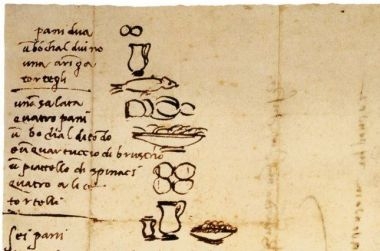 pani dua
ũ bochal di uino
una aringa
tortegli
una salata
quatro pani
ũ bochal di tõdo
e ũ quartuccio di bruscho
ũ piattello di spinaci
quatro alice
tortelli
sei pani